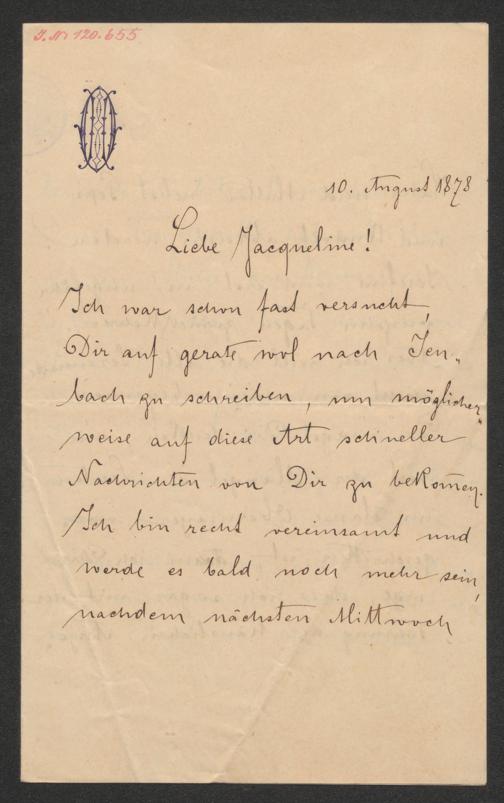 I.N. 120.655
10. August 1878
Liebe Jacqueline!
Ich war schon fast versucht,
Dir auf gerate wol nach Jen„
bach zu schreiben, um möglicher„
weise auf diese Art schneller
Nachrichten von Dir zu bekom̄en.
Ich bin recht vereinsamt und
werde es bald noch mehr sein,
nachdem nächsten Mittwoch